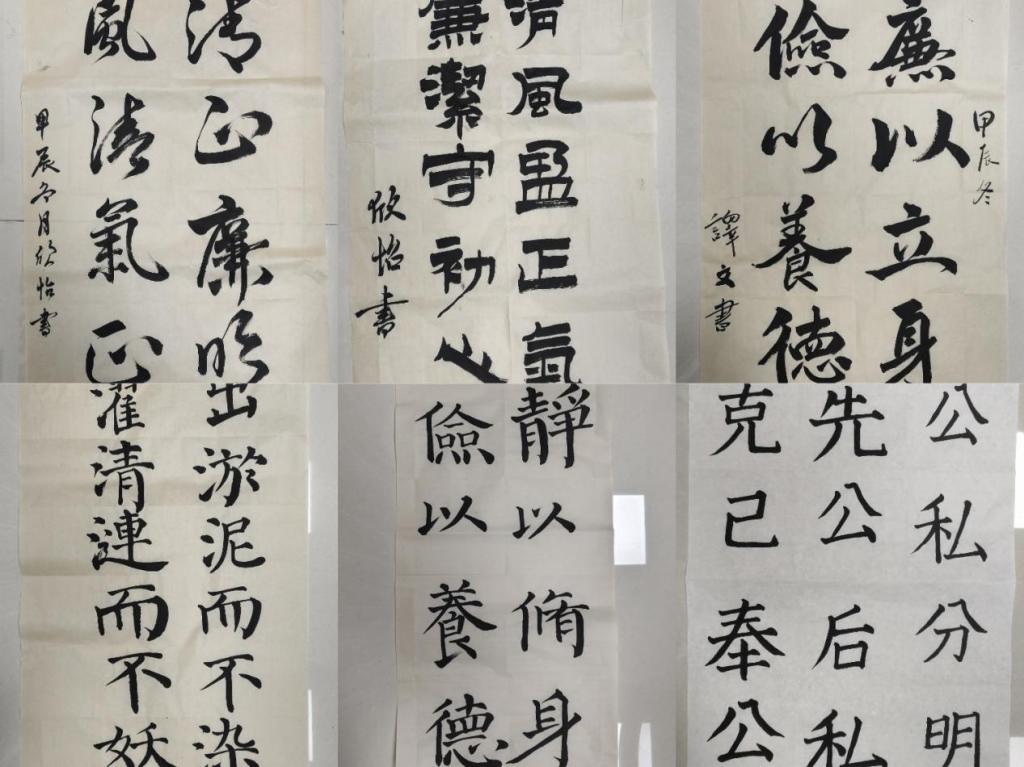 清正廉明
風清氣正
甲辰冬月欣怡書
清風盈正氣
廉潔守初心
欣怡書
廉以立身
儉以養德
甲辰冬
譯文書
出淤泥而不染
濯清漣而不妖
靜以脩身
儉以養德
公私分明
先公后私
克己奉公